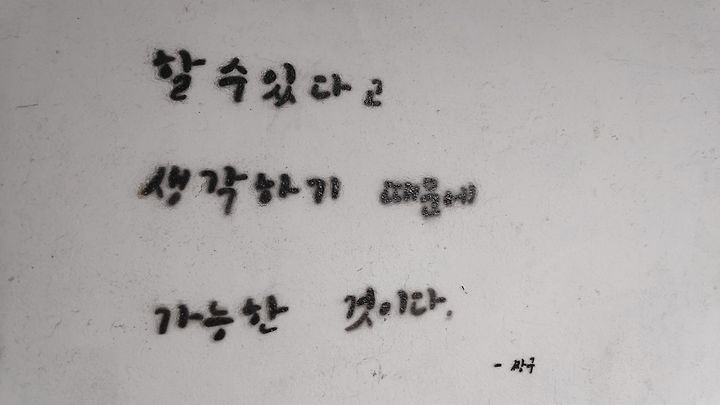 할 수 있다고
생각하기 때문에
가능한 것이다.
- 짱구